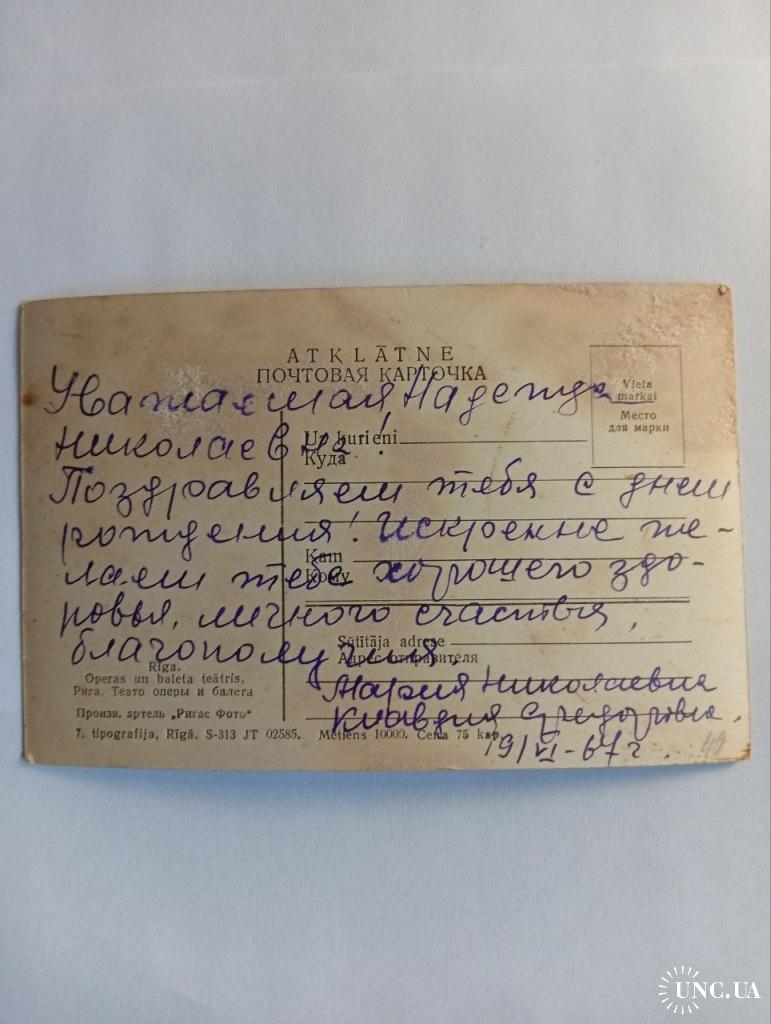 ATKLĀTNE
ПОЧТОВАЯ КАРТОЧКА
Vieta
markai
Место
для марки
Уважаемая Надежда
Николаевна!
Uz kurieni
Куда
Поздравляем тебя с днем
рождения! Искренне же-
Kam
Кому
лаем тебе хорошего здо-
ровья, личного счастья,
благополучия.
Sūtītāja adrese
Адрес отправителя
Мария Николаевна
Клавдия Федоровна.
19/VI-67 г.
Rīga.
Operas un baleta teātris.
Рига. Театр оперы и балета
Произв. артель „Ригас Фото"
7. tipografija, Rīgā. S-313 JT 02585. Metiens 10000. Cena 75 kap.
UNC.UA